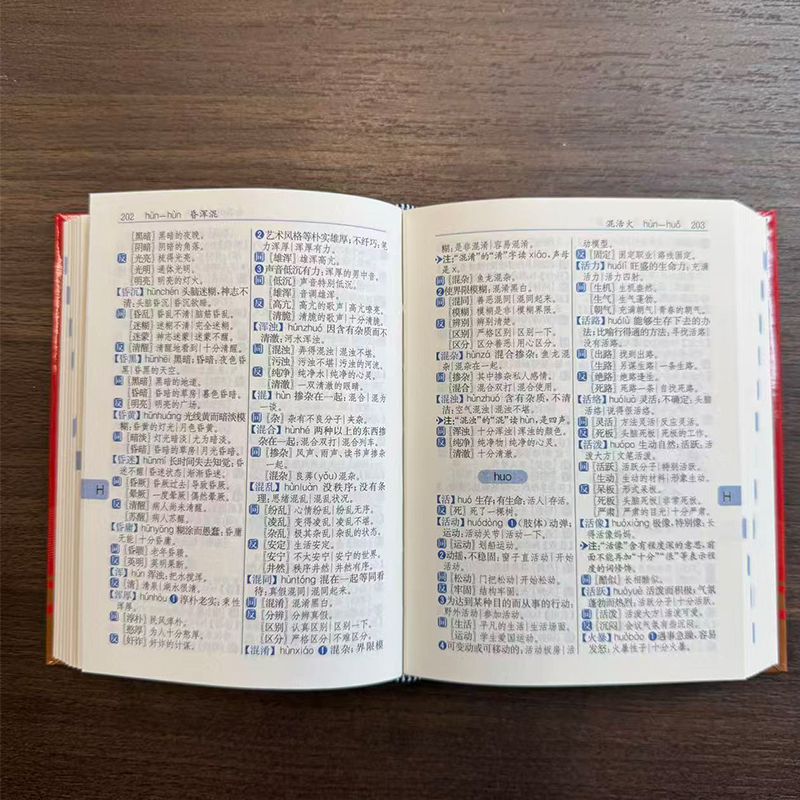 202 hūn—hùn 昏浑混
[黑暗] 黑暗的夜晚。
[阴暗] 阴暗的角落。
反 [光亮] 梳得光亮。
[光明] 通体光明。
[明亮] 明亮的灯火。
【昏沉】hūnchén 头脑迷糊,神志不
清:头脑昏沉|昏沉欲睡。
同 [昏乱] 昏乱不清|脑筋昏乱。
[迷糊] 迷糊不清|完全迷糊。
[迷蒙] 神志迷蒙|迷蒙不醒。
反 [清醒] 清醒地看到|十分清醒。
【昏黑】hūnhēi 黑暗;昏暗:夜色昏
黑|昏黑的天空。
同 [黑暗] 黑暗的地道。
[昏暗] 昏暗的草房|暮色昏暗。
反 [明亮] 明亮的广场。
【昏黄】hūnhuáng 光线黄而暗淡模
糊:昏黄的灯光|月色昏黄。
同 [暗淡] 灯光暗淡|尤为暗淡。
[昏暗] 昏暗的月亮|暮色昏暗。
【昏迷】hūnmí 长时间失去知觉:昏
迷不醒|昏迷状态|渐渐昏迷。
同 [昏厥] 昏厥过去|导致昏厥。
[晕厥] 一度晕厥|偶然晕厥。
反 [清醒] 病人尚未清醒。
[苏醒] 病人苏醒。
【昏庸】hūnyōng 糊涂而愚蠢:昏庸
无能|十分昏庸。
同 [昏聩] 老年昏聩。
反 [英明] 英明果断。
【浑】hún 浑浊:把水搅浑。
反 [清] 清泉|湖水很清。
【浑厚】húnhòu ❶淳朴老实:秉性
浑厚。
同 [淳朴] 民风淳朴。
[憨厚] 为人十分憨厚。
反 [奸诈] 奸诈的计谋。
❷艺术风格等朴实雄厚;不纤巧:笔
力浑厚|浑厚有力。
同 [雄浑] 雄浑高亢。
❸声音低沉有力:浑厚的男中音。
同 [低沉] 声音特别低沉。
[雄浑] 音调雄浑。
反 [高亢] 高亢的歌声|高亢嘹亮。
[清脆] 清脆的歌声|十分清脆。
【浑浊】húnzhuó 因含有杂质而不
清澈:河水浑浊。
同 [混浊] 弄得混浊|混浊不堪。
[污浊] 污浊不堪|污浊的河流。
反 [纯净] 纯净水|纯净的心灵。
[清澈] 一双清澈的眼睛。
【混】hùn 掺杂在一起:混合|混为
一谈。
同 [杂] 杂有不良分子|夹杂。
【混合】hùnhé 两种以上的东西掺
杂在一起:混合双打|混合列车。
同 [掺杂] 风声、雨声、读书声掺杂
一起。
[混杂] 良莠(yǒu)混杂。
【混乱】hùnluàn 没秩序;没有条
理:思绪混乱|混乱状况。
同 [纷乱] 心情纷乱|纷乱无序。
[凌乱] 变得凌乱|凌乱不堪。
[杂乱] 极其杂乱|杂乱的状态。
反 [安定] 生活安定。
[安宁] 不大安宁|安宁的世界。
[井然] 秩序井然|井然有序。
【混同】hùntóng 混在一起等同看
待:真假混同|混同起来。
同 [混淆] 混淆黑白。
反 [分辨] 分辨真假。
[区别] 认真区别|区别一下。
[区分] 严格区分|不难区分。
【混淆】hùnxiáo ❶混杂;界限模
混活火 hùn—huǒ 203
糊:是非混淆|容易混淆。
注:“混淆”的“淆”字读 xiáo,声母
是 x。
同 [混杂] 鱼龙混杂。
❷使界限模糊:混淆黑白。
同 [混同] 善恶混同|混同起来。
[模糊] 模糊是非|模糊界限。
反 [辨别] 辨别清楚。
[区别] 严格区别|区别一下。
[区分] 区分善恶|用心区分。
【混杂】hùnzá 混合掺杂:鱼龙混
杂|混杂在一起。
同 [掺杂] 其中掺杂私人感情。
[混合] 混合双打|混合使用。
【混浊】hùnzhuó 含有杂质,不清
洁:空气混浊|混浊不堪。
注:“混浊”的“混”读 hùn,是四声。
同 [浑浊] 十分浑浊|浑浊的颜色。
反 [纯净] 纯净物|纯净的心灵。
[清澈] 十分清澈。
huo
【活】huó 生存;有生命:活人|存活。
反 [死] 死了一棵树。
【活动】huódòng ❶(肢体)动弹;
运动:活动关节|活动一下。
同 [运动] 划船运动。
❷动摇,不稳固:窗子直活动|开始
活动。
同 [松动] 门把松动|开始松动。
反 [牢固] 结构牢固。
❸为达到某种目的而从事的行动:
野外活动|参加活动。
同 [生活] 平凡的生活|生活场面。
[运动] 学生爱国运动。
❹可变动或可移动的:活动板房|活
动模型。
反 [固定] 固定职业|路线固定。
【活力】huólì 旺盛的生命力:充满
活力|活力四射。
同 [生机] 生机盎然。
[生气] 生气蓬勃。
[朝气] 充满朝气|青春的朝气。
【活路】huólù 能够生存下去的办
法;比喻行得通的方法:寻找活路|
没有活路。
同 [出路] 找到出路。
[生路] 另谋生路|一条生路。
反 [绝路] 绝路逢生。
[死路] 死路一条|自找死路。
【活络】huóluò 灵活;不确定:头脑
活络|说得很活络。
同 [灵活] 方法灵活|反应灵活。
反 [死板] 头脑死板|死板的工作。
【活泼】huópo 生动自然;灵活:活
泼大方|文笔活泼。
同 [活跃] 活跃分子|特别活跃。
[生动] 生动的材料|形象生动。
反 [呆板] 形式呆板。
[死板] 头脑死板|非常死板。
[严肃] 严肃的目光|十分严肃。
【活像】huóxiàng 极像,特别像:长
得活像妈妈。
注:“活像”含有程度深的意思,前
面不能再加“十分”“很”等表示程
度的词修饰。
同 [酷似] 长相酷似。
【活跃】huóyuè 活泼而积极;气氛
蓬勃而热烈:活跃分子|十分活跃。
同 [活泼] 活泼可爱|生动活泼。
反 [沉闷] 会议气氛有些沉闷。
【火暴】huǒbào ❶遇事急躁,容易
发怒:火暴性子|十分火暴。
H
H